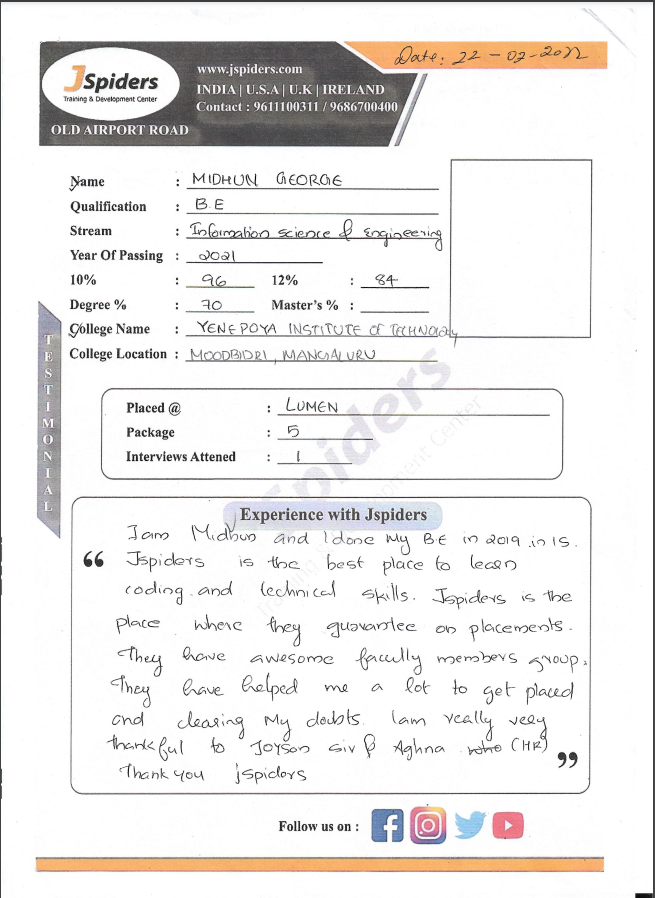 Date: 22-02-2022
JSpiders
Training & Development Center
OLD AIRPORT ROAD
www.jspiders.com
INDIA | U.S.A | U.K | IRELAND
Contact : 9611100311 / 9686700400
Name : MIDHUN GEORGE
Qualification : B.E
Stream : Information science & Engineering
Year Of Passing : 2021
10% : 96 12% : 84
Degree % : 70 Master's % :
College Name : YENEPOYA INSTITUTE of TECHNOLOGY
College Location : MOODBIDRI, MANGALURU
TESTIMONIAL
Placed @ : LUMEN
Package : 5
Interviews Attened : 1
Experience with Jspiders
I am Midhun and I done My B.E in 2019 in IS.
Jspiders is the best place to learn
coding and technical skills. Jspiders is the
place where they guarantee on placements.
They have awesome faculty members group.
They have helped me a lot to get placed
and clearing My doubts. I am really very
thankful to Joyson sir & Aghna (HR)
Thank you jspiders
Follow us on :